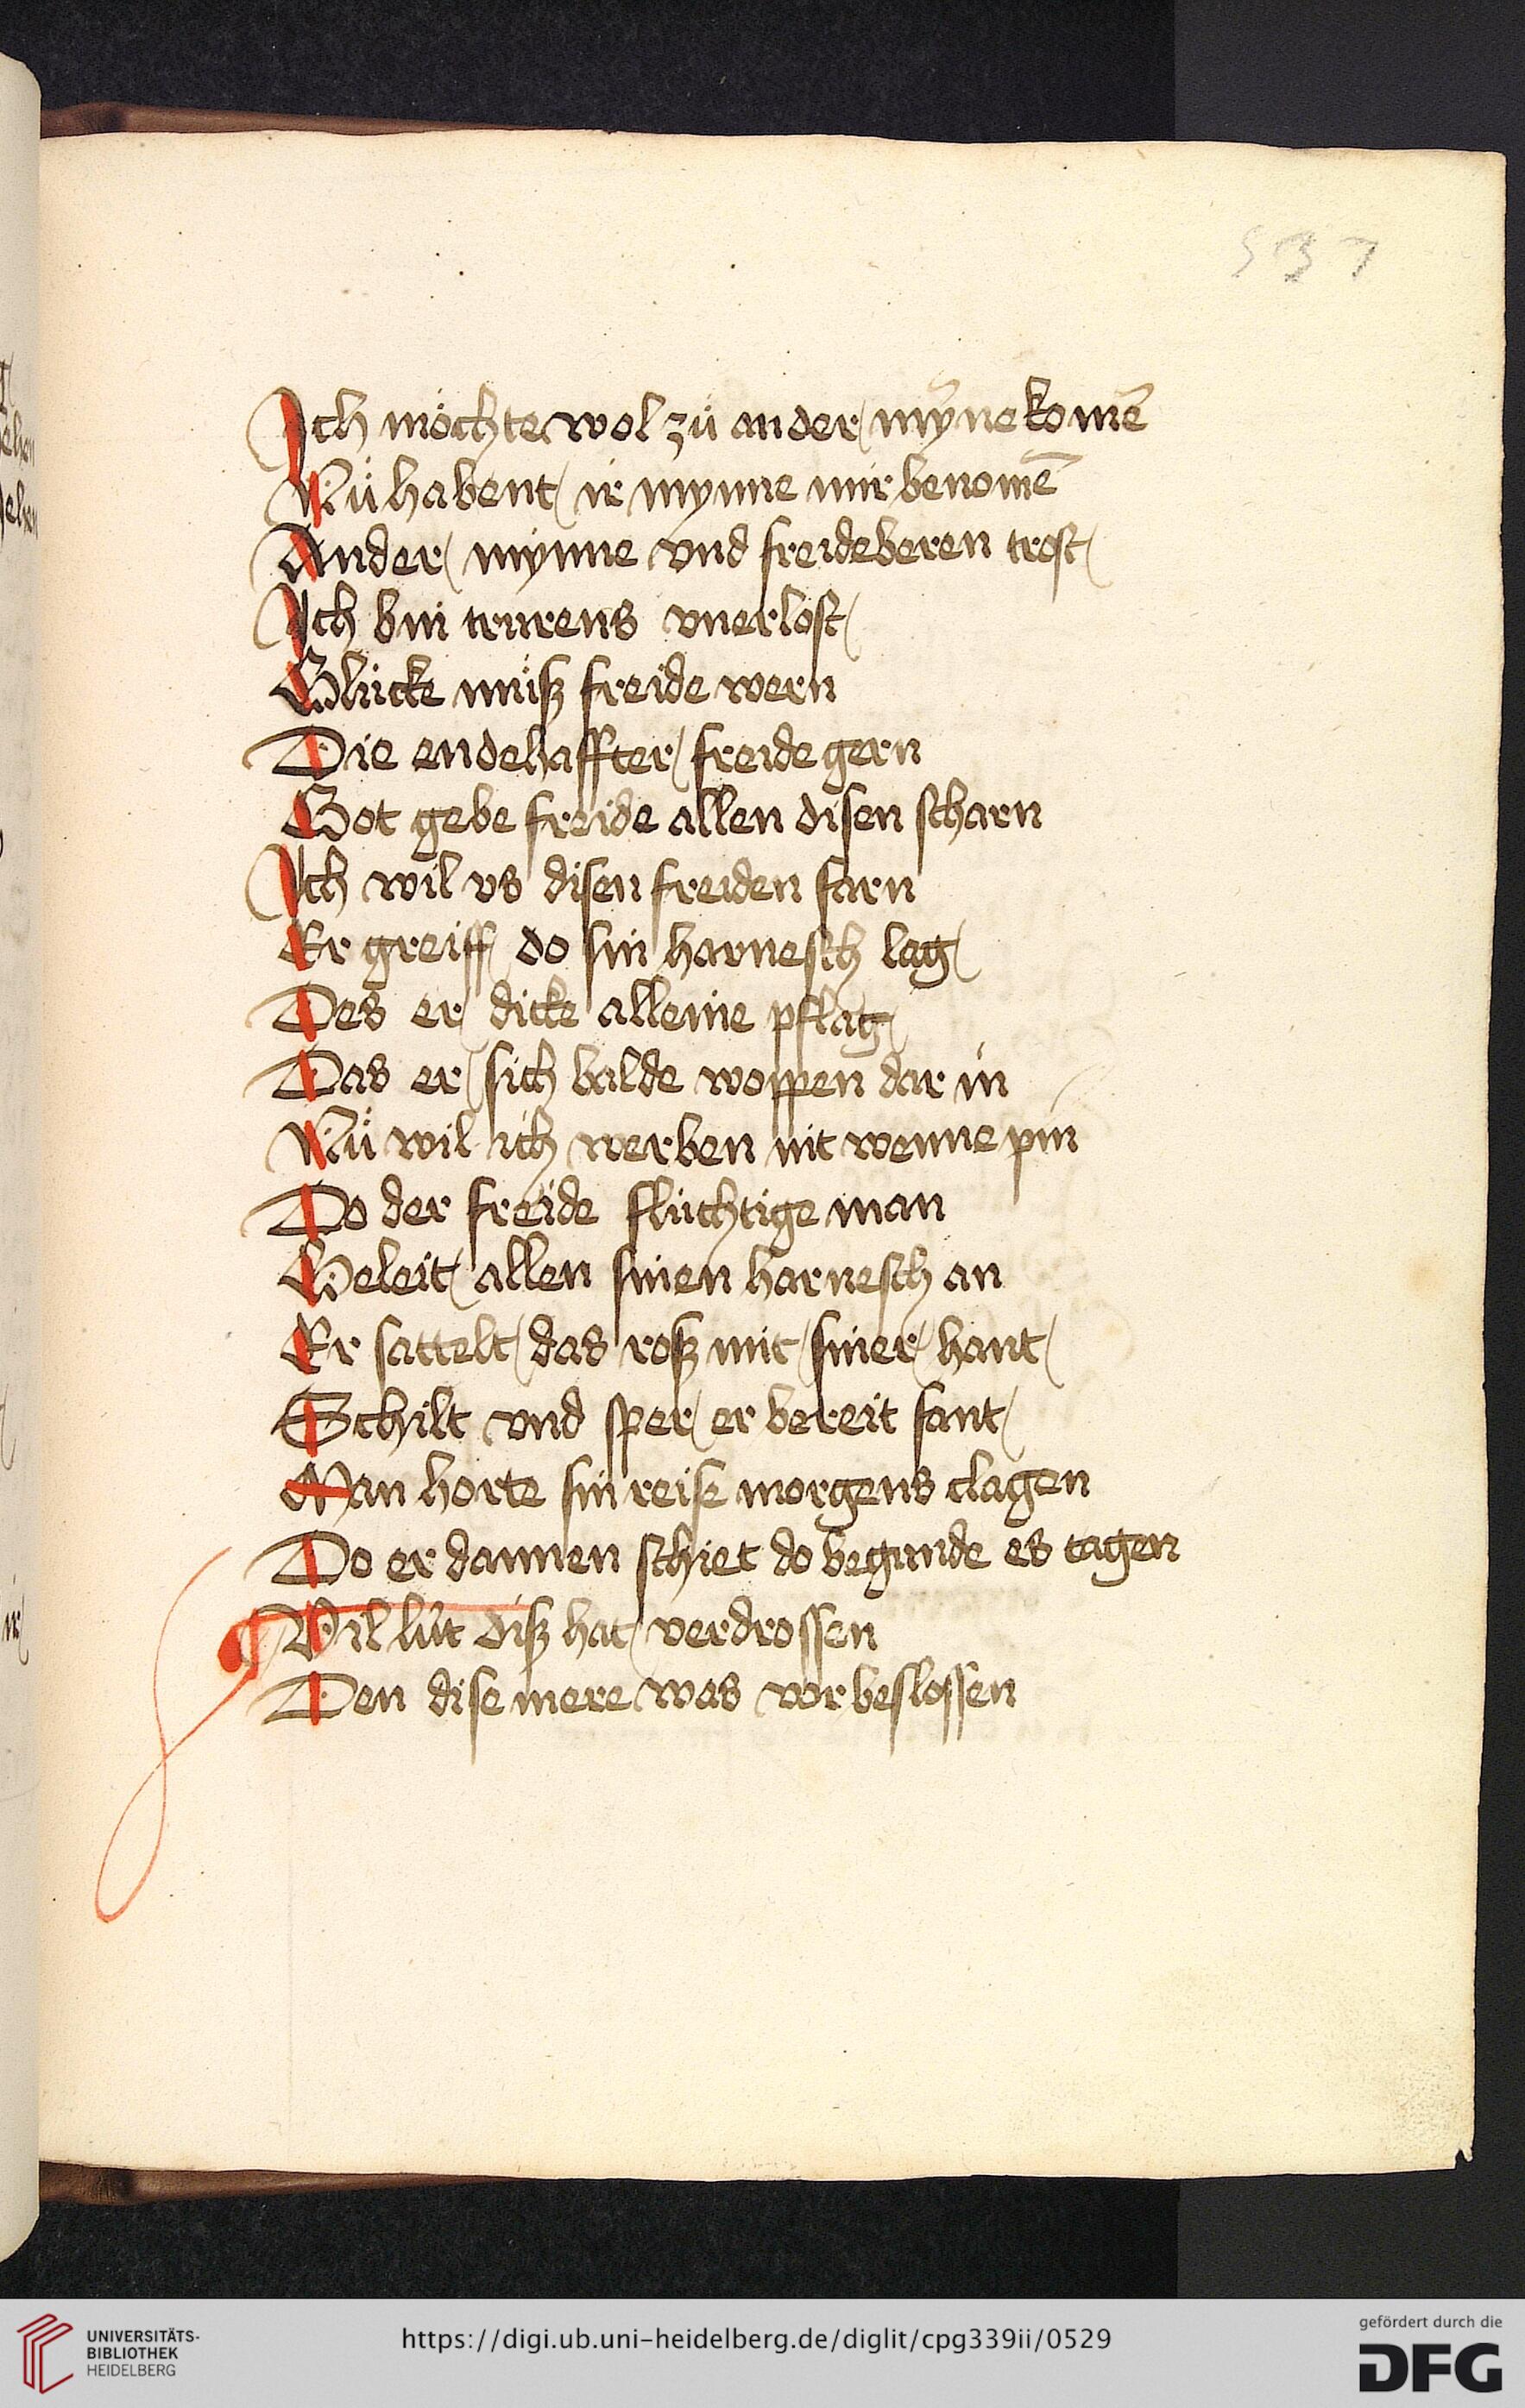 537
Ich möchte wol zü ander mȳne komē
Nü habent ir mynne mir benomē
Ander mynne vnd freideberen trost
Ich bin trurens vnerlost
Glücke müsz freide wern
Die endehaffter freide gern
Got gebe freide allen disen scharn
Ich wil vs disen freiden farn
Er greiff do sin harnesch lag
Des er dicke alleine pflag
Das er sich balde woppen dar in
Nü wil ich werben nit wenne pin
Do der freide flüchtige man
Geleit allen sinen harnesch an
Er sattelt das rosz mit siner hant
Schilt vnd sper er bereit fant
Man horte sin reise morgens clagen
Do er dannen schiet do begunde es tagen
Vil lüt disz hat verdrossen
Den dise mere was vor beslossen
UNIVERSITÄTS-
BIBLIOTHEK
HEIDELBERG
https://digi.ub.uni-heidelberg.de/diglit/cpg339ii/0529
gefördert durch die
DFG